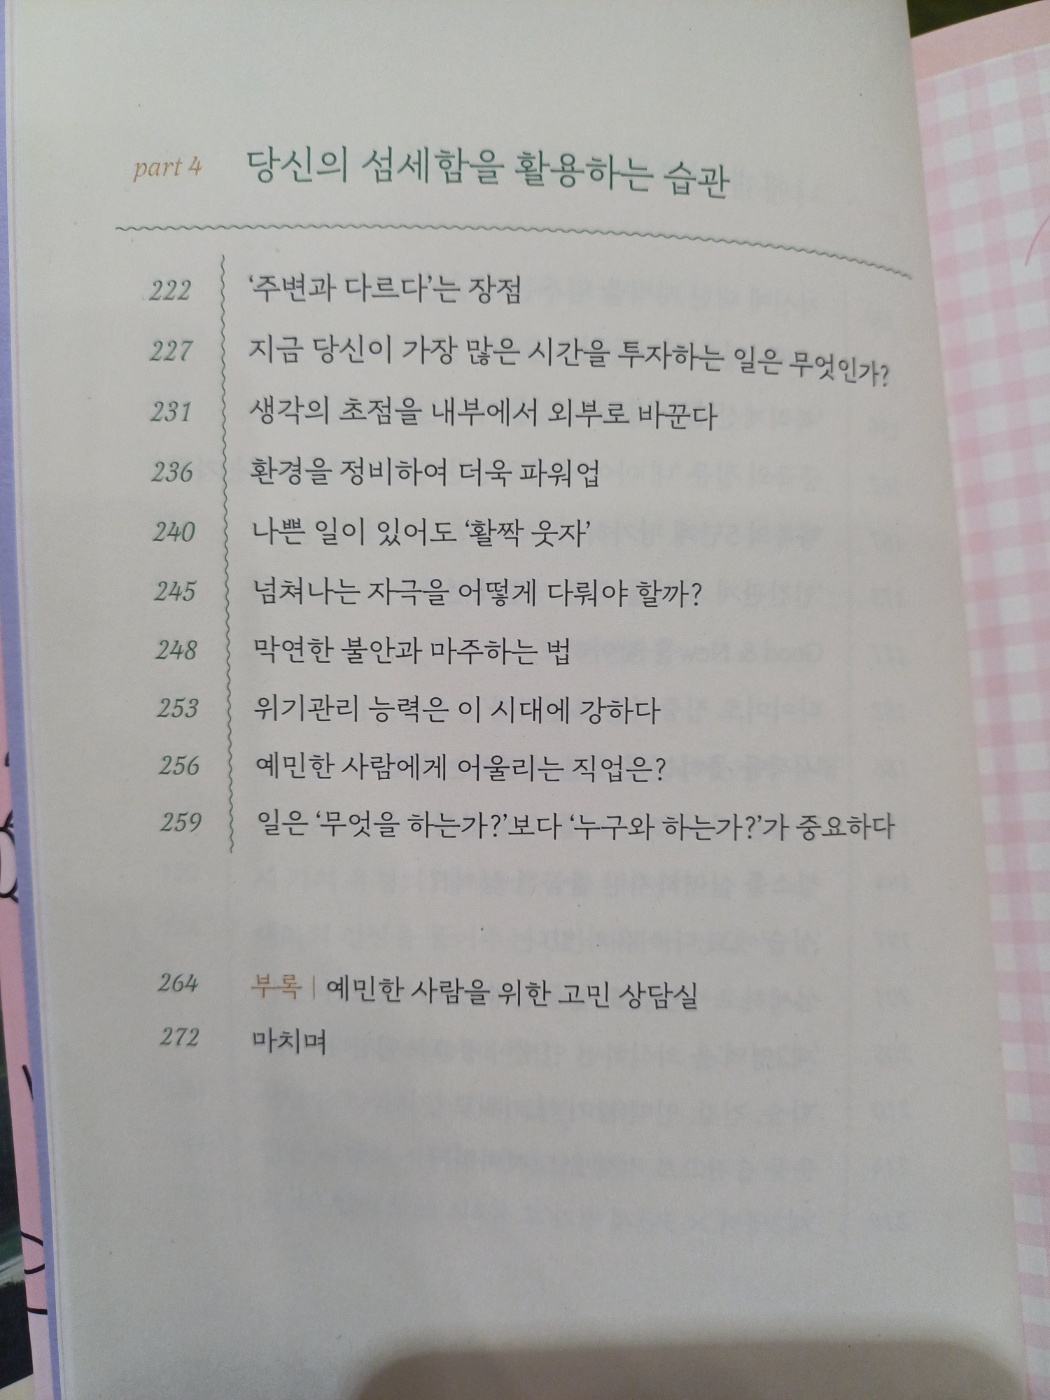 part 4 당신의 섬세함을 활용하는 습관
222 ‘주변과 다르다’는 장점
227 지금 당신이 가장 많은 시간을 투자하는 일은 무엇인가?
231 생각의 초점을 내부에서 외부로 바꾼다
236 환경을 정비하여 더욱 파워업
240 나쁜 일이 있어도 ‘활짝 웃자’
245 넘쳐나는 자극을 어떻게 다뤄야 할까?
248 막연한 불안과 마주하는 법
253 위기관리 능력은 이 시대에 강하다
256 예민한 사람에게 어울리는 직업은?
259 일은 ‘무엇을 하는가?’보다 ‘누구와 하는가?’가 중요하다
264 부록 | 예민한 사람을 위한 고민 상담실
272 마치며